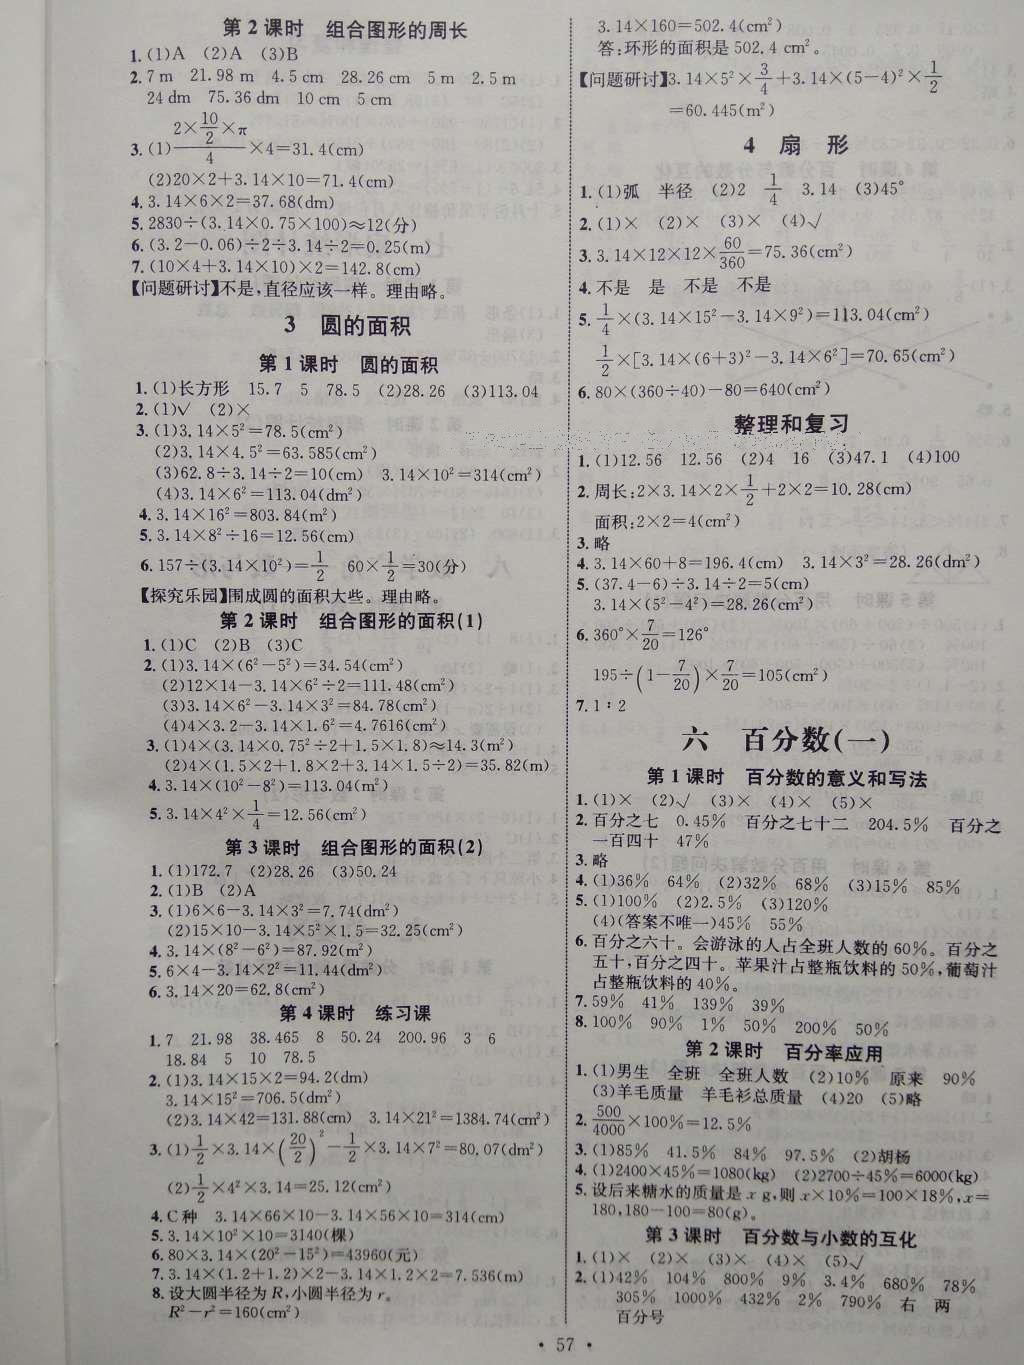 第2课时 组合图形的周长
1.(1)A (2)A (3)B
2.7 m 21.98 m 4.5 cm 28.26 cm 5 m 2.5 m
24 dm 75.36 dm 10 cm 5 cm
3.(1)\frac{2×\frac{10}{2}×π}{4}×4=31.4(cm)
(2)20×2+3.14×10=71.4(cm)
4.3.14×6×2=37.68(dm)
5.2830÷(3.14×0.75×100)≈12(分)
6.(3.2-0.06)÷2÷3.14÷2=0.25(m)
7.(10×4+3.14×10)×2=142.8(cm)
【问题研讨】不是,直径应该一样。理由略。
3 圆的面积
第1课时 圆的面积
1.(1)长方形 15.7 5 78.5 (2)28.26 (3)113.04
2.(1)√ (2)×
3.(1)3.14×5²=78.5(cm²)
(2)3.14×4.5²=63.585(cm²)
(3)62.8÷3.14÷2=10(cm) 3.14×10²=314(cm²)
(4)3.14×6²=113.04(dm²)
4.3.14×16²=803.84(m²)
5.3.14×8²÷16=12.56(cm)
6.157÷(3.14×10²)=\frac{1}{2} 60×\frac{1}{2}=30(分)
【探究乐园】围成圆的面积大些。理由略。
第2课时 组合图形的面积(1)
1.(1)C (2)B (3)C
2.(1)3.14×(6²-5²)=34.54(cm²)
(2)12×14-3.14×6²÷2=111.48(cm²)
(3)3.14×6²-3.14×3²=84.78(cm²)
(4)4×3.2-3.14×1.6²=4.7616(cm²)
3.(1)4×(3.14×0.75²÷2+1.5×1.8)≈14.3(m²)
(2)4×(1.5×2+1.8×2+3.14×1.5÷2)=35.82(m)
4.3.14×(10²-8²)=113.04(m²)
5.3.14×4²×\frac{1}{4}=12.56(cm²)
第3课时 组合图形的面积(2)
1.(1)172.7 (2)28.26 (3)50.24
2.(1)B (2)A
3.(1)6×6-3.14×3²=7.74(dm²)
(2)15×10-3.14×5²×1.5=32.25(cm²)
4.3.14×(8²-6²)=87.92(m²)
5.6×4-3.14×2²=11.44(dm²)
6.3.14×20=62.8(cm²)
第4课时 练习课
1.7 21.98 38.465 8 50.24 200.96 3 6
18.84 5 10 78.5
2.(1)3.14×15×2=94.2(dm)
3.14×15²=706.5(dm²)
(2)3.14×42=131.88(cm) 3.14×21²=1384.74(cm²)
3.(1)\frac{1}{2}×3.14×(\frac{20}{2})²-\frac{1}{2}×3.14×7²=80.07(dm²)
(2)\frac{1}{2}×4²×3.14=25.12(cm²)
4.C种 3.14×66×10-3.14×56×10=314(cm)
5.3.14×10²×10=3140(棵)
6.80×3.14×(20²-15²)=43960(元)
7.3.14×(1.2+1.2)×2-3.14×1.2×2=7.536(m)
8.设大圆半径为R,小圆半径为r。
R²-r²=160(cm²)
3.14×160=502.4(cm²)
答:环形的面积是502.4 cm²。
【问题研讨】3.14×5²×\frac{3}{4}+3.14×(5-4)²×\frac{1}{2}
=60.445(m²)
4 扇形
1.(1)弧 半径 (2)2 \frac{1}{4} 3.14 (3)45°
2.(1)× (2)× (3)× (4)√
3.3.14×12×12×\frac{60}{360}=75.36(cm²)
4.不是 是 不是 不是
5.\frac{1}{4}×(3.14×15²-3.14×9²)=113.04(cm²)
\frac{1}{2}×[3.14×(6+3)²-3.14×6²]=70.65(cm²)
6.80×(360÷40)-80=640(cm²)
整理和复习
1.(1)12.56 12.56 (2)4 16 (3)47.1 (4)100
2.周长:2×3.14×2×\frac{1}{2}+2×2=10.28(cm)
面积:2×2=4(cm²)
3.略
4.3.14×60+8=196.4(cm) 3.14×3²=28.26(dm²)
5.(37.4-6)÷3.14÷2=5(cm)
3.14×(5²-4²)=28.26(cm²)
6.360°×\frac{7}{20}=126°
195÷(1-\frac{7}{20})×\frac{7}{20}=105(cm²)
7.1∶2
六 百分数(一)
第1课时 百分数的意义和写法
1.(1)× (2)√ (3)× (4)× (5)×
2.百分之七 0.45% 百分之七十二 204.5% 百分之
一百四十 47%
3.略
4.(1)36% 64% (2)32% 68% (3)15% 85%
5.(1)100% (2)2.5% (3)120%
(4)(答案不唯一)45% 55%
6.百分之六十。会游泳的人占全班人数的60%。百分之
五十,百分之四十。苹果汁占整瓶饮料的50%,葡萄汁
占整瓶饮料的40%。
7.59% 41% 139% 39%
8.100% 90% 1% 50% 200% 50%
第2课时 百分率应用
1.(1)男生 全班 全班人数 (2)10% 原来 90%
(3)羊毛质量 羊毛衫总质量 (4)20 (5)略
2.\frac{500}{4000}×100%=12.5%
3.(1)85% 41.5% 84% 97.5% (2)胡杨
4.(1)2400×45%=1080(kg) (2)2700÷45%=6000(kg)
5.设后来糖水的质量是x g,则x×10%=100×18%,x=
180,180-100=80(g)。
第3课时 百分数与小数的互化
1.(1)× (2)× (3)× (4)× (5)√
2.(1)42% 104% 800% 9% 3.4% 680% 78%
305% 1000% 432% 2% 790% 右 两
百分号
• 57 •